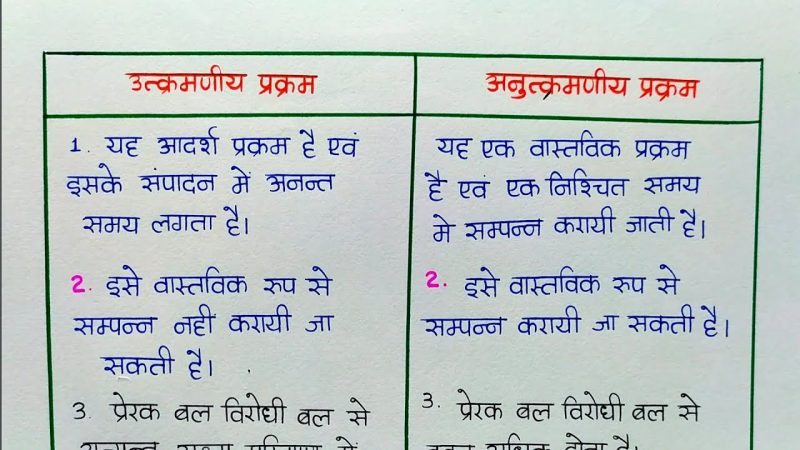 उत्क्रमणीय प्रक्रम
1. यह आदर्श प्रक्रम है एवं
इसके संपादन में अनन्त
समय लगता है।
2. इसे वास्तविक रुप से
सम्पन्न नही करायी जा
सकती है।
3. प्रेरक बल विरोधी बल से
अनुत्क्रमणीय प्रक्रम
यह एक वास्तविक प्रक्रम
है एवं एक निश्चित समय
मे सम्पन्न करायी जाती है।
2. इसे वास्तविक रुप से
सम्पन्न करायी जा सकती है।
3. प्रेरक बल विरोधी बल से